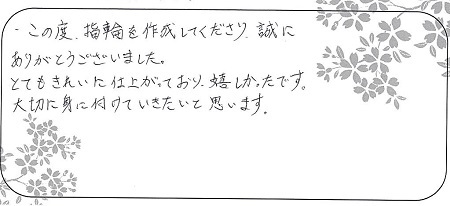 ・この度、指輪を作成してくださり、誠に
ありがとうございました。
とてもきれいに仕上がっており、嬉しかったです。
大切に身に付けていきたいと思います。